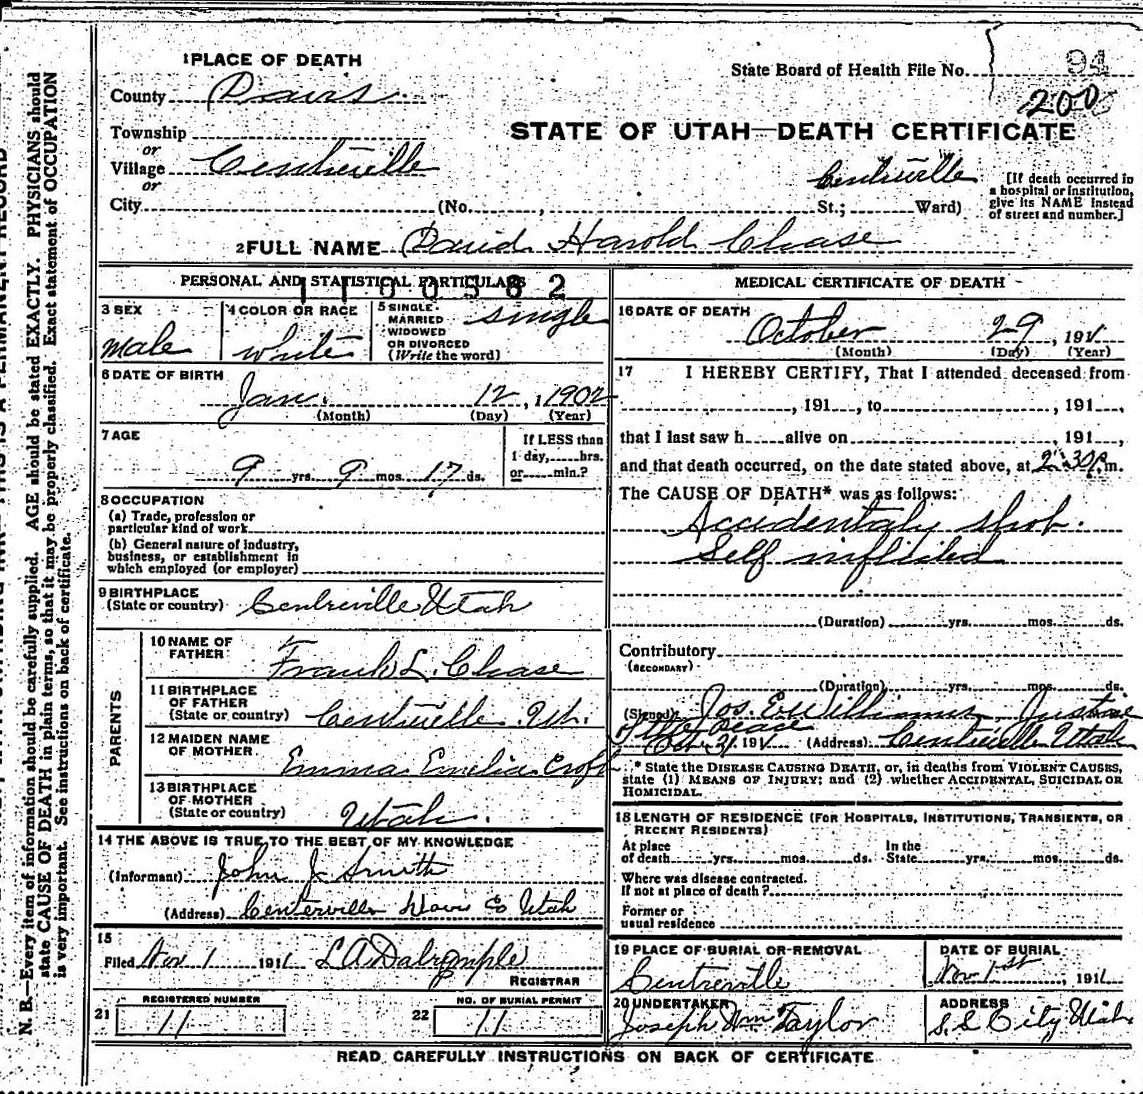 1 PLACE OF DEATH
State Board of Health File No. 94
200
County Davis
STATE OF UTAH—DEATH CERTIFICATE
Township
or
Village Centreville
or
City (No. , Centreville St.; Ward)
[If death occurred in
a hospital or institution,
give its NAME instead
of street and number.]
2 FULL NAME David Harold Chase
PERSONAL AND STATISTICAL PARTICULARS
3 SEX
male
4 COLOR OR RACE
white
5 SINGLE.
MARRIED
WIDOWED
OR DIVORCED
(Write the word)
single
6 DATE OF BIRTH
Jan. 12, , 1902
(Month) (Day) (Year)
7 AGE
9 yrs. 9 mos. 17 ds.
If LESS than
1 day, hrs.
or min.?
8 OCCUPATION
(a) Trade, profession or
particular kind of work
(b) General nature of industry,
business, or establishment in
which employed (or employer)
9 BIRTHPLACE
(State or country) Centreville Utah
PARENTS
10 NAME OF
FATHER
Frank L. Chase
11 BIRTHPLACE
OF FATHER
(State or country) Centreville Ut.
12 MAIDEN NAME
OF MOTHER
Emma Emelia Croft
13 BIRTHPLACE
OF MOTHER
(State or country) Utah.
14 THE ABOVE IS TRUE TO THE BEST OF MY KNOWLEDGE
(Informant) John J Smith
(Address) Centerville Davis Co Utah
15
Filed Nov 1 1911 L A Dalrymple
REGISTRAR
21 REGISTERED NUMBER
11
22 NO. OF BURIAL PERMIT
11
MEDICAL CERTIFICATE OF DEATH
16 DATE OF DEATH
October 29 , 1911
(Month) (Day) (Year)
17 I HEREBY CERTIFY, That I attended deceased from
, 191 , to , 191 ,
that I last saw h alive on , 191 ,
and that death occurred, on the date stated above, at 2:30 P.m.
The CAUSE OF DEATH* was as follows:
Accidentaly shot.
Self inflicted
(Duration) yrs. mos. ds.
Contributory
(SECONDARY)
(Duration) yrs. mos. ds.
(Signed) Jos. E. Williams Justice
of the Peace
Oct. 31 1911 (Address) Centreville Utah
* State the DISEASE CAUSING DEATH, or, in deaths from VIOLENT CAUSES,
state (1) MEANS OF INJURY; and (2) whether ACCIDENTAL, SUICIDAL OR
HOMICIDAL.
18 LENGTH OF RESIDENCE (FOR HOSPITALS, INSTITUTIONS, TRANSIENTS, OR
RECENT RESIDENTS)
At place
of death yrs. mos. ds.
In the
State yrs. mos. ds.
Where was disease contracted.
If not at place of death?
Former or
usual residence
19 PLACE OF BURIAL OR REMOVAL
Centreville
DATE OF BURIAL
Nov 1st , 1911
20 UNDERTAKER
Joseph Wm Taylor
ADDRESS
S. L. City Utah
READ CAREFULLY INSTRUCTIONS ON BACK OF CERTIFICATE
N. B.—Every item of information should be carefully supplied. AGE should be stated EXACTLY. PHYSICIANS should
state CAUSE OF DEATH in plain terms, so that it may be properly classified. Exact statement of OCCUPATION
is very important. See instructions on back of certificate.